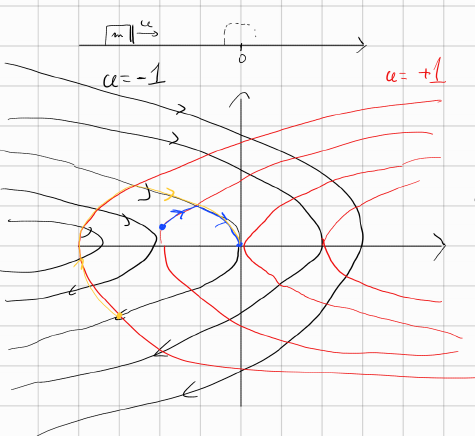 m u
0
u = -1
u = +1